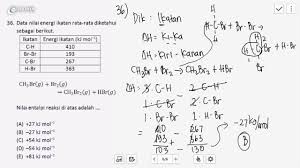 36. Data nilai energi ikatan rata-rata diketahui
sebagai berikut.
Ikatan Energi Ikatan (kJ mol⁻¹)
C-H 410
Br-Br 193
C-Br 267
H-Br 363
CH₃Br(g) + Br₂(g)
⇒ CH₂Br₂(g) + HBr(g)
Nilai entalpi reaksi di atas adalah ...
(A) +27 kJ mol⁻¹
(B) −27 kJ mol⁻¹
(C) +54 kJ mol⁻¹
(D) −54 kJ mol⁻¹
(E) +81 kJ mol⁻¹
36)
Dik: Ikatan
ΔH = Ki - Ka
ΔH = Kiri - Kanan
CH₃Br + Br₂ → CH₂Br₂ + HBr
1. Br-Br
1. H-Br
193 363
603 630
−27 kJ/mol
B